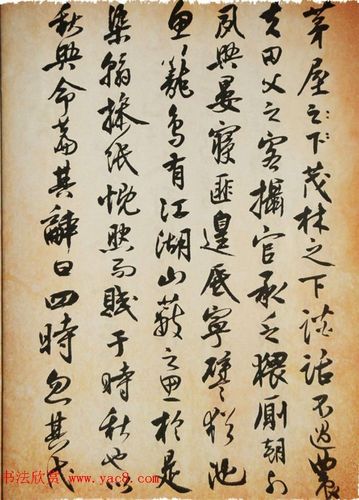 茅屋之下茂林之下談話不過農
夫田父之客攝官承乏猥厠朝列
夙興晏寢匪遑底寧譬猶池
魚籠鳥有江湖山藪之思於是
染翰操紙慨然而賦于時秋也以
秋興命篇其辭曰四時忽其代
书法欣赏 www.yac8.com